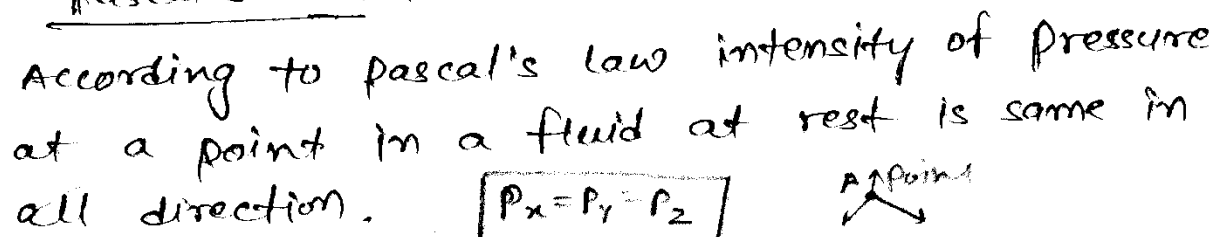 According to pascal's law intensity of pressure
at a point in a fluid at rest is same in
all direction. Px = Py = Pz A Point